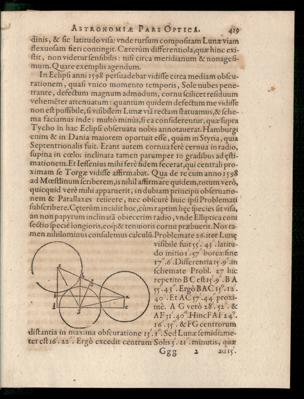 ASTRONOMIÆ PARS OPTICA. 419
dinis, & sic latitudo visa: vnde rursum compositam Lunæ viam
flexuosam fieri contingit. Cæterùm differentiola, quæ hinc exi-
stit, non videtur sensibilis: nisi circa meridianum & nonagesi-
mum. Quare exemplis agendum.
In Eclipsi anni 1598 persuadebar vidisse circa mediam obscu-
rationem, quasi vnico momento temporis, Sole nubes pene-
trante, defectum magnum admodum, cornu scilicet residuum
vehementer attenuatum: quantum quidem defectum me vidisse
non est possibile, si visibilem Lunæ viâ rectam statuamus, & sche-
ma faciamus inde: multò minùs, si ea considerentur, quæ superis
Tycho in hac Eclipsi obseruata nobis annotauerat. Hamburgi
enim & in Dania maiorem oportuit esse, quàm in Styria, quia
Septentrionalis fuit. Erant autem cornua ferè cernua in radio,
supina in cœlos inclinata tamen parumper 10 gradibus ad æsti-
mationem. Et Iessenius mihi ferè fidem fecerat, qui centrali pro-
ximam se Torgæ vidisse affirmabat. Qua de re cum 1598
ad Mœstlinum scriberem, & nihil affirmare quidem, totum verò,
quicquid verè mihi apparuerit, in dubiam principiis obseruatio-
nem & Parallaxes reiicere, nec obscurè huic ipsi Problemati
subscribere. Cæterùm inciditur hoc, cùm raptim hæc species sit visa,
an non papyrum inclinatâ obiecerim radio, vnde Elliptica coni
sectio specie longiori, coiq; & tenuioris cornu præbuerit. Nos ta-
men nihilominus consulemus calculũ. Problemate 26. iter Lunę
visibile fuit 55′. 43″. latitu-
do initio 1′. 57″ borea: fine
17′. 6″. Differentia 15′. 9″. in
schemate Probl. 27 hic
repetito BC est 15′. 9″. BA
55. 43″. Ergò BAC 15°. 12′.
40″. Et AC 57′. 44″ proxi-
mè. A G verò 28′. 52″. &
AF 31′. 40″. Hinc FAI 24°.
16′. 35″. & FG centrorum
distantia in maxima obscuratione 13′. 1″. Sed Lunæ semidiame-
ter est 16′. 22″. Ergò excedit centrum Solis 3′. 21″. minutis, quæ
Ggg 2 2015.